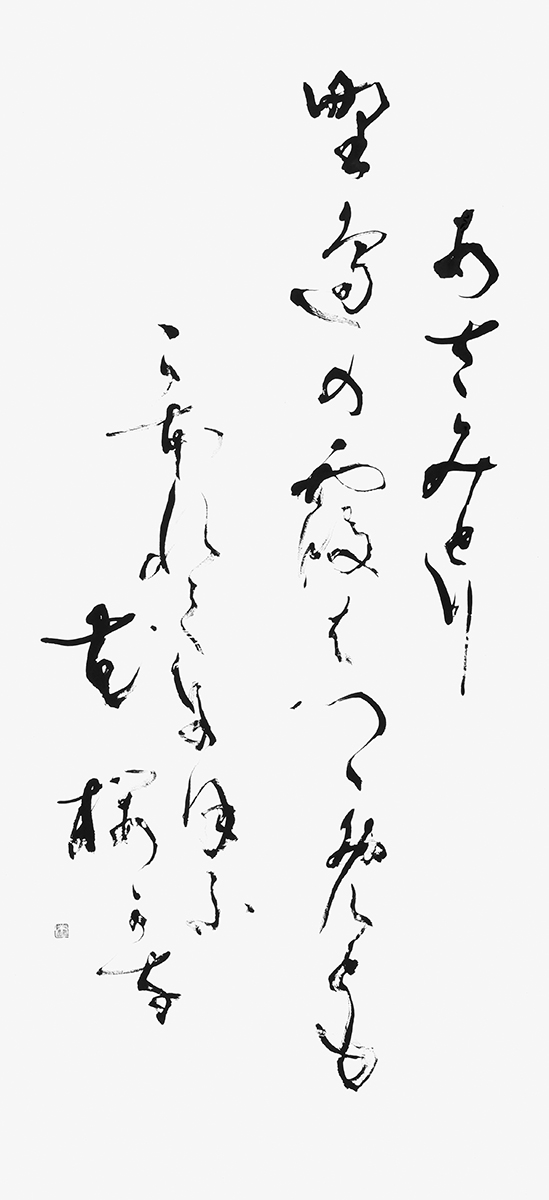 あさみとり
野邊の霞はつゝめとも
こほれてにほふ
花櫻かな